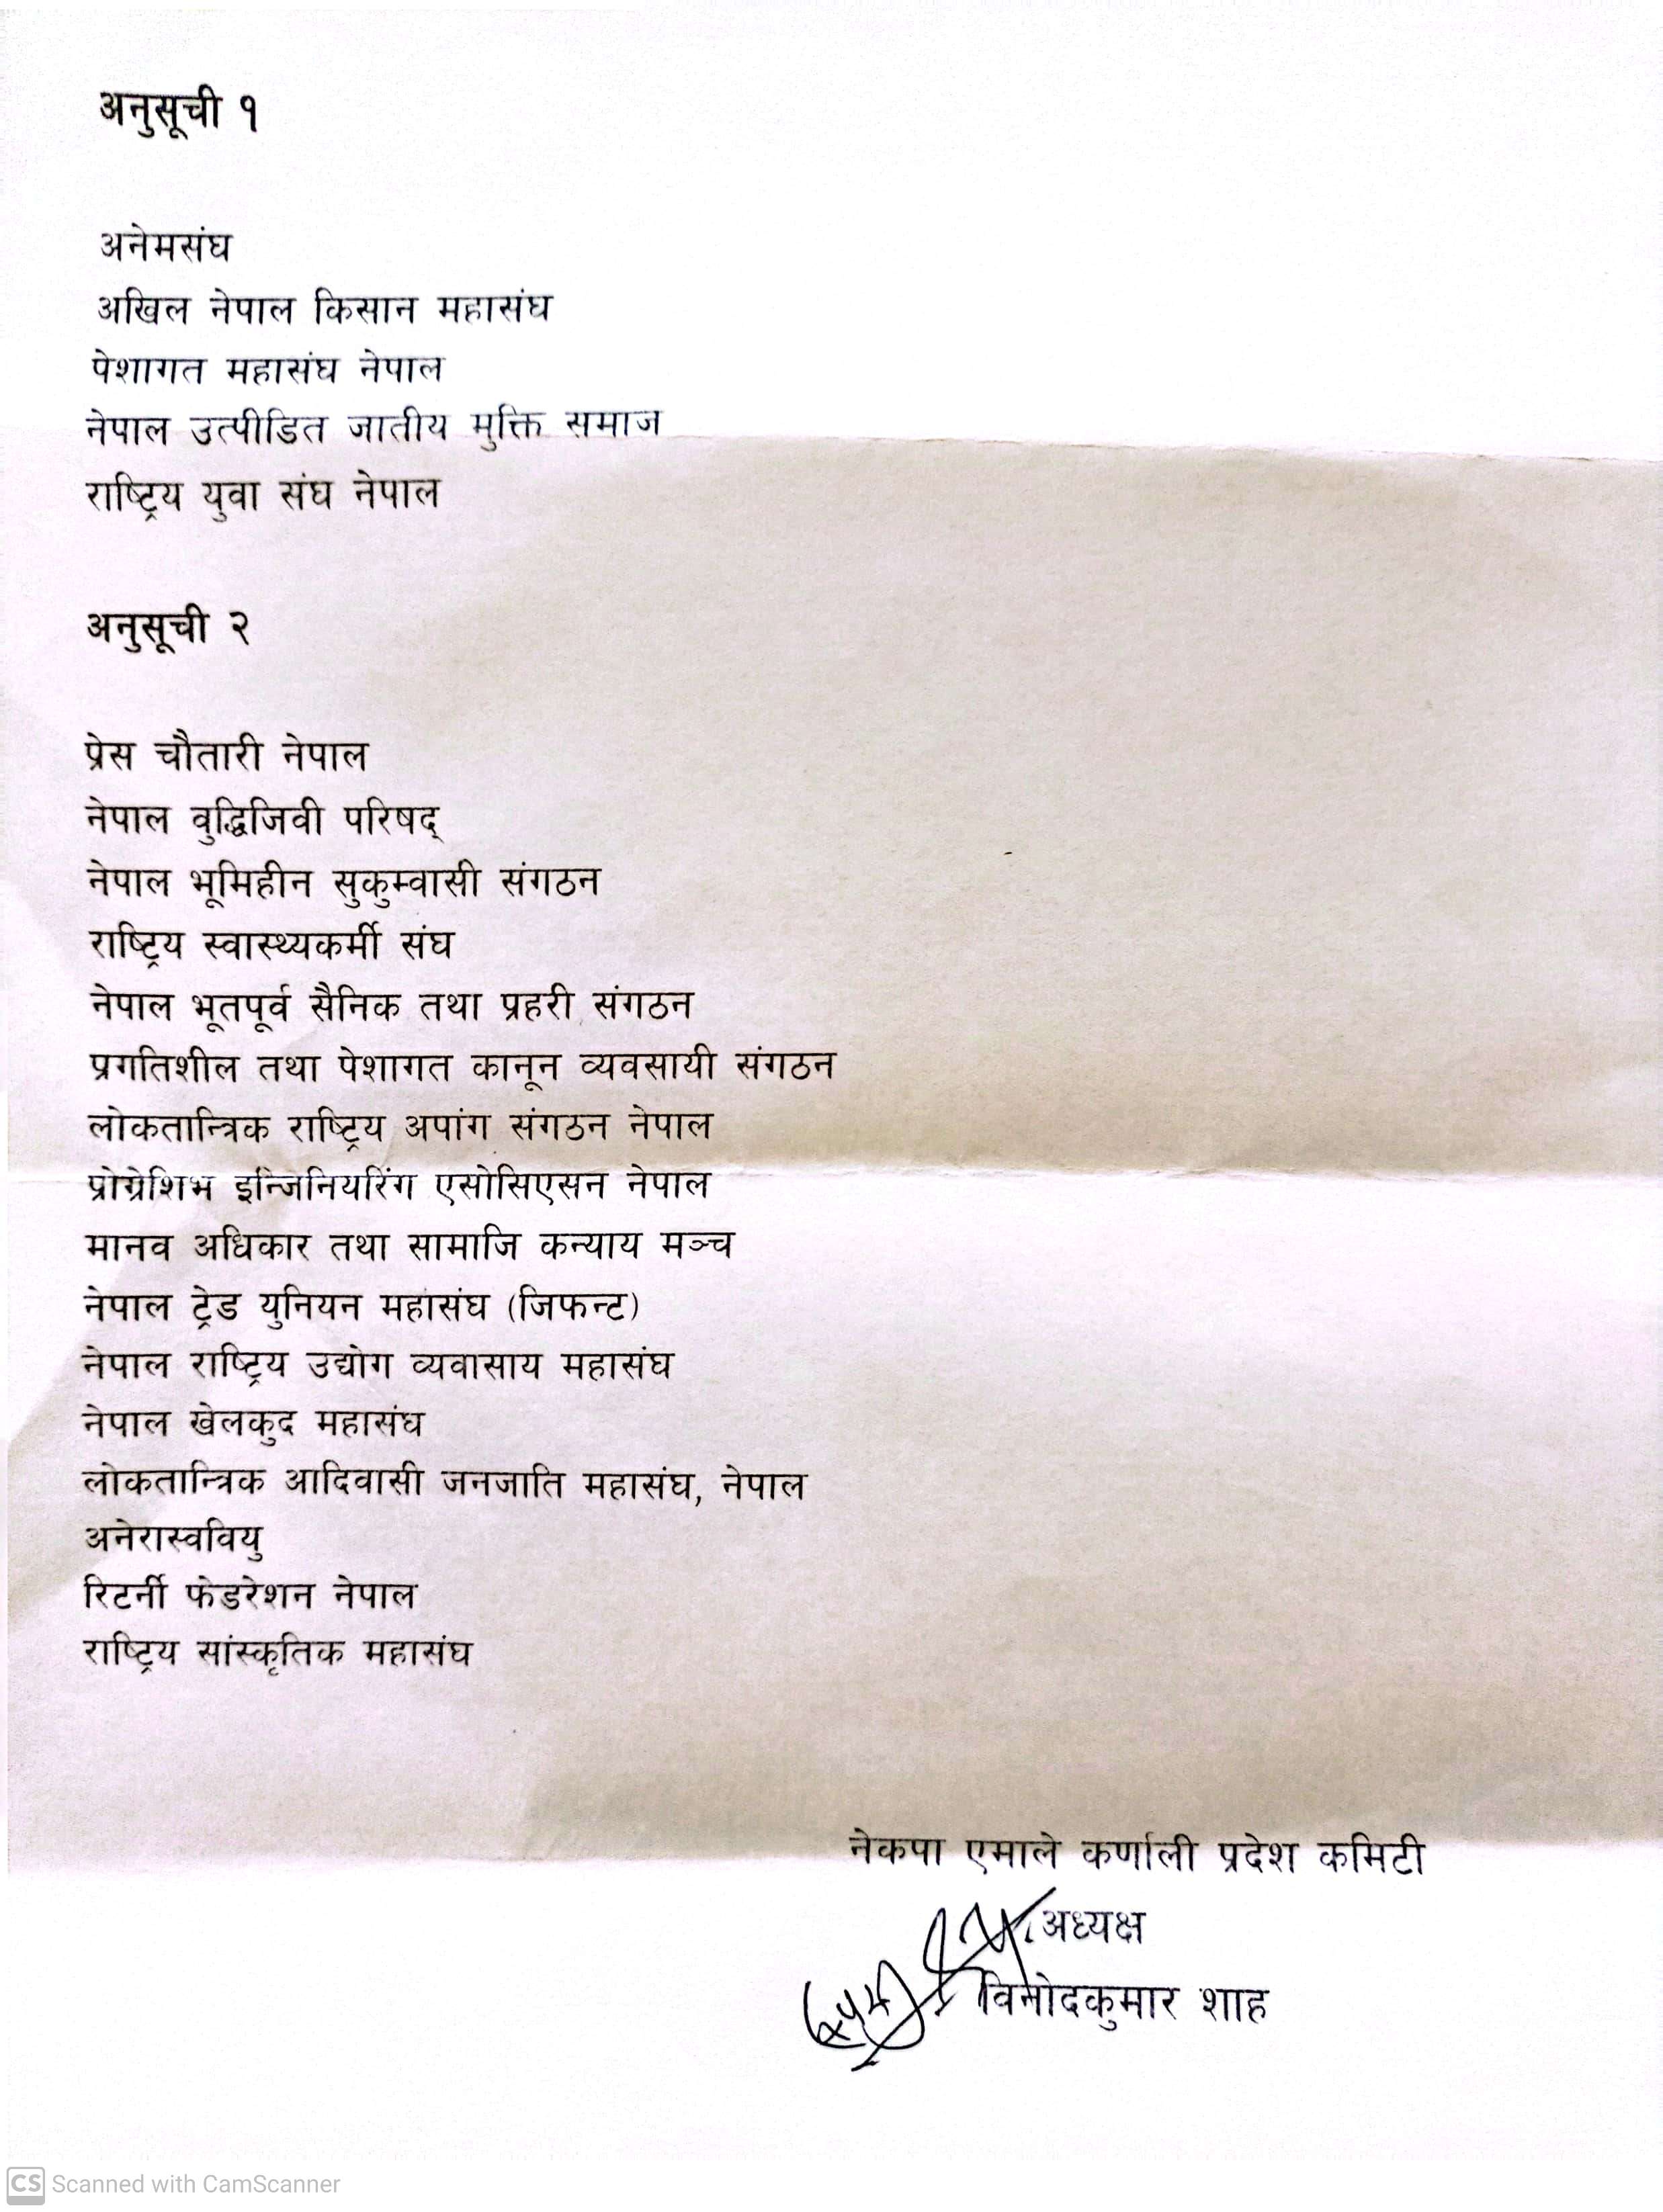 अनुसूची १
अनेमसंघ
अखिल नेपाल किसान महासंघ
पेशागत महासंघ नेपाल
नेपाल उत्पीडित जातीय मुक्ति समाज
राष्ट्रिय युवा संघ नेपाल
अनुसूची २
प्रेस चौतारी नेपाल
नेपाल वुद्धिजिवी परिषद्
नेपाल भूमिहीन सुकुम्वासी संगठन
राष्ट्रिय स्वास्थ्यकर्मी संघ
नेपाल भूतपूर्व सैनिक तथा प्रहरी संगठन
प्रगतिशील तथा पेशागत कानून व्यवसायी संगठन
लोकतान्त्रिक राष्ट्रिय अपांग संगठन नेपाल
प्रोग्रेशिभ इन्जिनियरिंग एसोसिएसन नेपाल
मानव अधिकार तथा सामाजि कन्याय मञ्च
नेपाल ट्रेड युनियन महासंघ (जिफन्ट)
नेपाल राष्ट्रिय उद्योग व्यवासाय महासंघ
नेपाल खेलकुद महासंघ
लोकतान्त्रिक आदिवासी जनजाति महासंघ, नेपाल
अनेरास्ववियु
रिटर्नी फेडरेशन नेपाल
राष्ट्रिय सांस्कृतिक महासंघ
नेकपा एमाले कर्णाली प्रदेश कमिटी
अध्यक्ष
विनोदकुमार शाह
CS Scanned with CamScanner